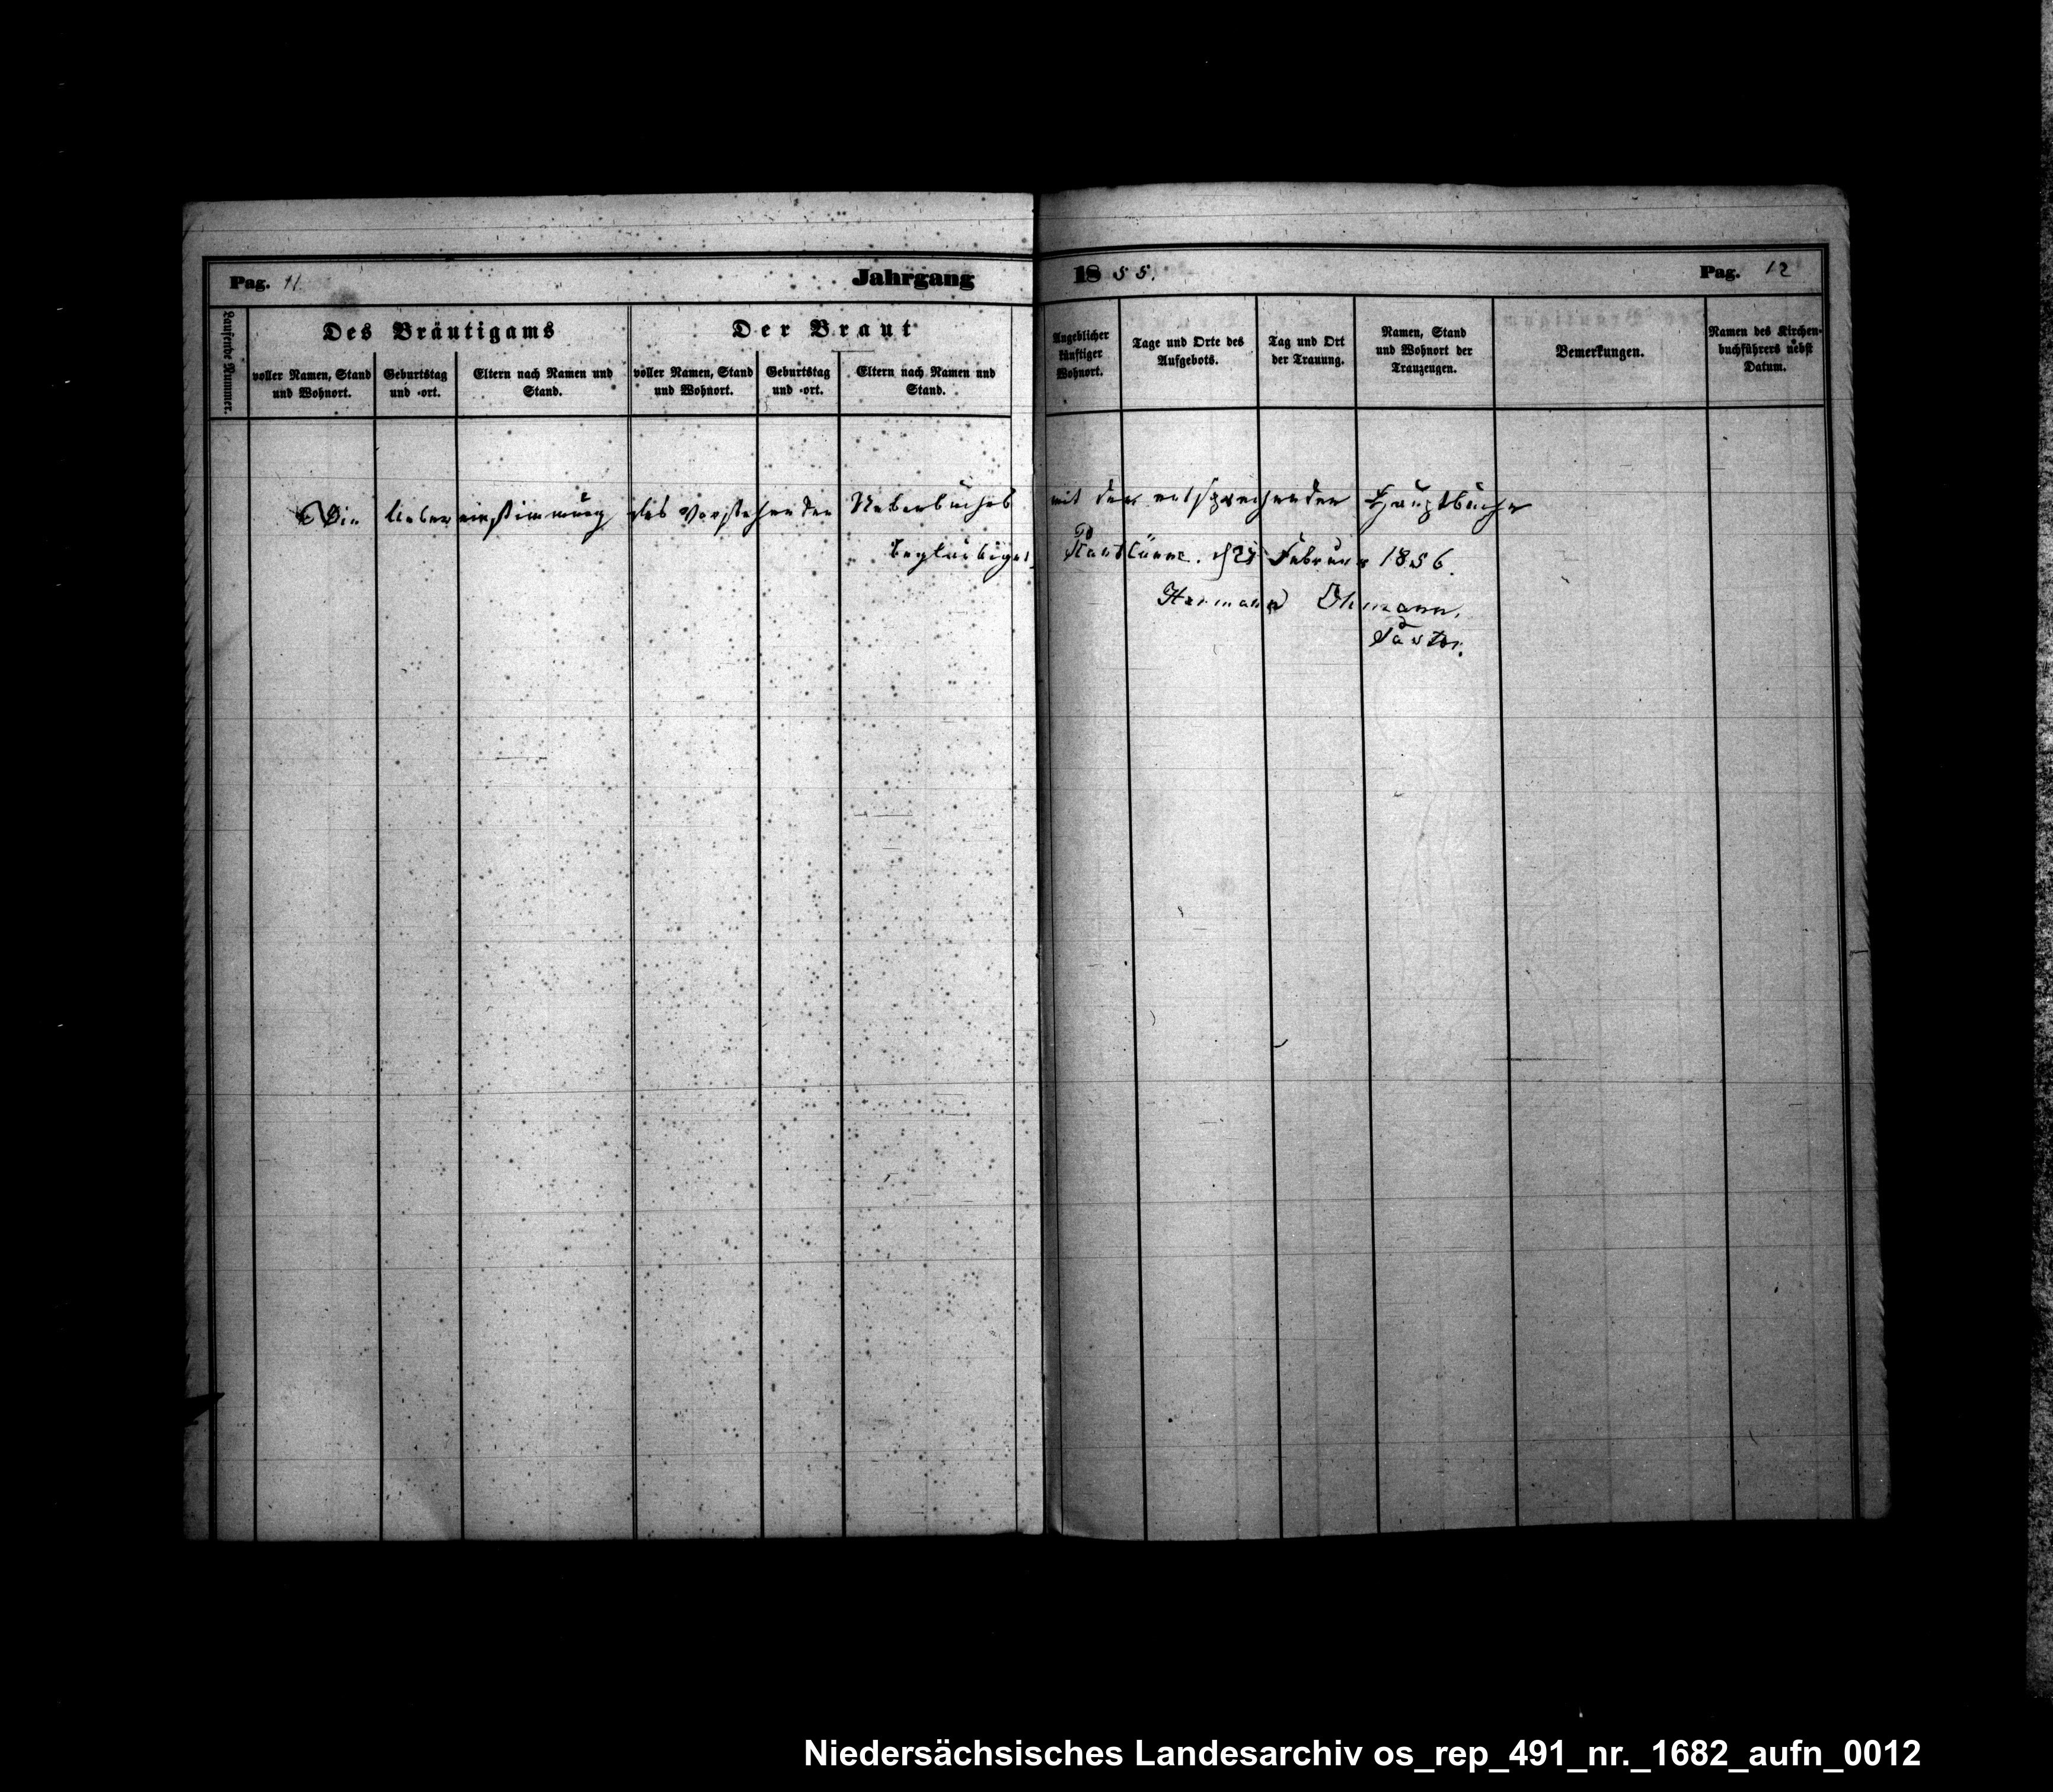 Pag. 11
Jahrgang 1855.
Pag. 12
Laufende Nummer.
Des Bräutigams
voller Namen, Stand und Wohnort.
Geburtstag und -ort.
Eltern nach Namen und Stand.
Der Braut
voller Namen, Stand und Wohnort.
Geburtstag und -ort.
Eltern nach Namen und Stand.
Angeblicher künftiger Wohnort.
Tage und Orte des Aufgebots.
Tag und Ort der Trauung.
Namen, Stand und Wohnort der Trauzeugen.
Bemerkungen.
Namen des Kirchenbuchführers nebst Datum.
Die Uebereinstimmung des vorstehenden Nebenbuches mit dem entsprechenden Hauptbuche
beglaubiget Februar 1856.
Hermann Ohmann,
Pastor.
Niedersächsisches Landesarchiv os_rep_491_nr._1682_aufn_0012